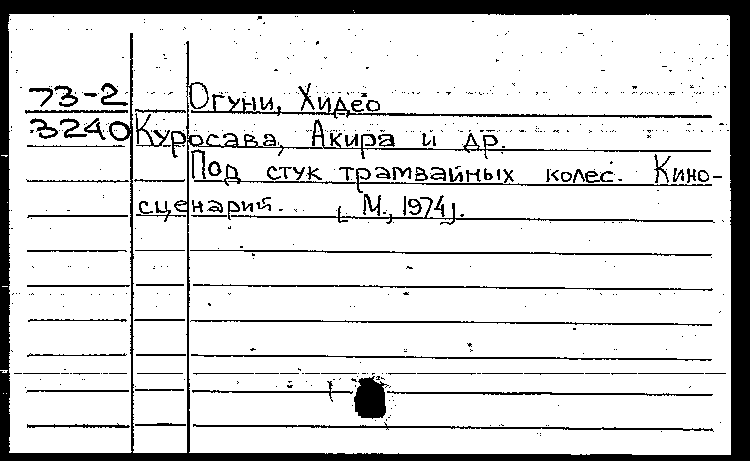 73-2 Огуни, Хидео
3240 Куросава, Акира и др.
Под стук трамвайных колес. Кино-
сценарий. [М., 1974].